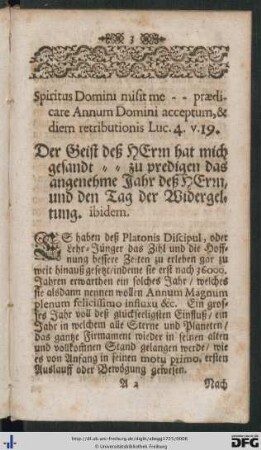 3
Spiritus Domini misit me - - prædi-
care Annum Domini acceptum, &
diem retributionis Luc. 4. v. 19.
Der Geist deß HErrn hat mich
gesandt - - zu predigen das
angenehme Jahr deß HErrn,
und den Tag der Widergel-
tung. ibidem.
ES haben deß Platonis Discipul, oder
Lehr-Jünger das Zihl und die Hoff-
nung bessere Zeiten zu erleben gar zu
weit hinauß gesetzt / indeme sie erst nach 36000.
Jahren erwarthen ein solches Jahr / welches
sie alsdann nennen wollen Annum Magnum
plenum felicissimo influxu &c. Ein gros-
ses Jahr voll deß glückseeligisten Einfluß / ein
Jahr in welchem alle Sterne und Planeten /
das gantze Firmament wieder in seinen alten
und vollkom̃nen Stand gelangen werde / wie
es von Anfang in seinen motu primo, ersten
Auslauff oder Bewögung gewesen.
A 2 Nach
http://dl.ub.uni-freiburg.de/diglit/
© Universitätsbibliothek Freiburg
Gefördert durch die
DFG